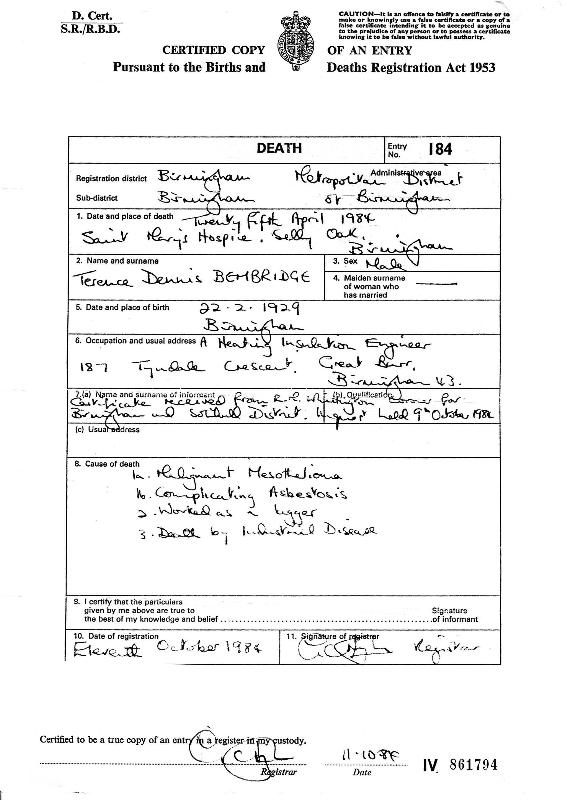 D. Cert.
S.R./R.B.D.
CAUTION—It is an offence to falsify a certificate or to
make or knowingly use a false certificate or a copy of a
false certificate intending it to be accepted as genuine
to the prejudice of any person or to possess a certificate
knowing it to be false without lawful authority.
CERTIFIED COPY OF AN ENTRY
Pursuant to the Births and Deaths Registration Act 1953
DEATH Entry No. 184
Registration district Birmingham Administrative area Metropolitan District
Sub-district Birmingham of Birmingham
1. Date and place of death Twenty Fifth April 1984
Saint Mary's Hospice. Selly Oak.
Birmingham
2. Name and surname 3. Sex Male
Terence Dennis BEMBRIDGE
4. Maiden surname
of woman who
has married
5. Date and place of birth 22-2-1929
Birmingham
6. Occupation and usual address A Heating Insulation Engineer
187 Tyndale Crescent, Great Barr,
Birmingham 43.
7.(a) Name and surname of informant (b) Qualification
Certificate received from Coroner for
Birmingham and Solihull District. Inquest held 9th October 1984
(c) Usual address
8. Cause of death
1a. Malignant Mesothelioma
1b. Complicating Asbestosis
2. Worked as a lagger
3. Death by Industrial Disease
9. I certify that the particulars
given by me above are true to
the best of my knowledge and belief Signature
of informant
10. Date of registration 11. Signature of registrar
Eleventh October 1984 Registrar
Certified to be a true copy of an entry in a register in my custody.
Registrar 11-10-84 Date IV 861794